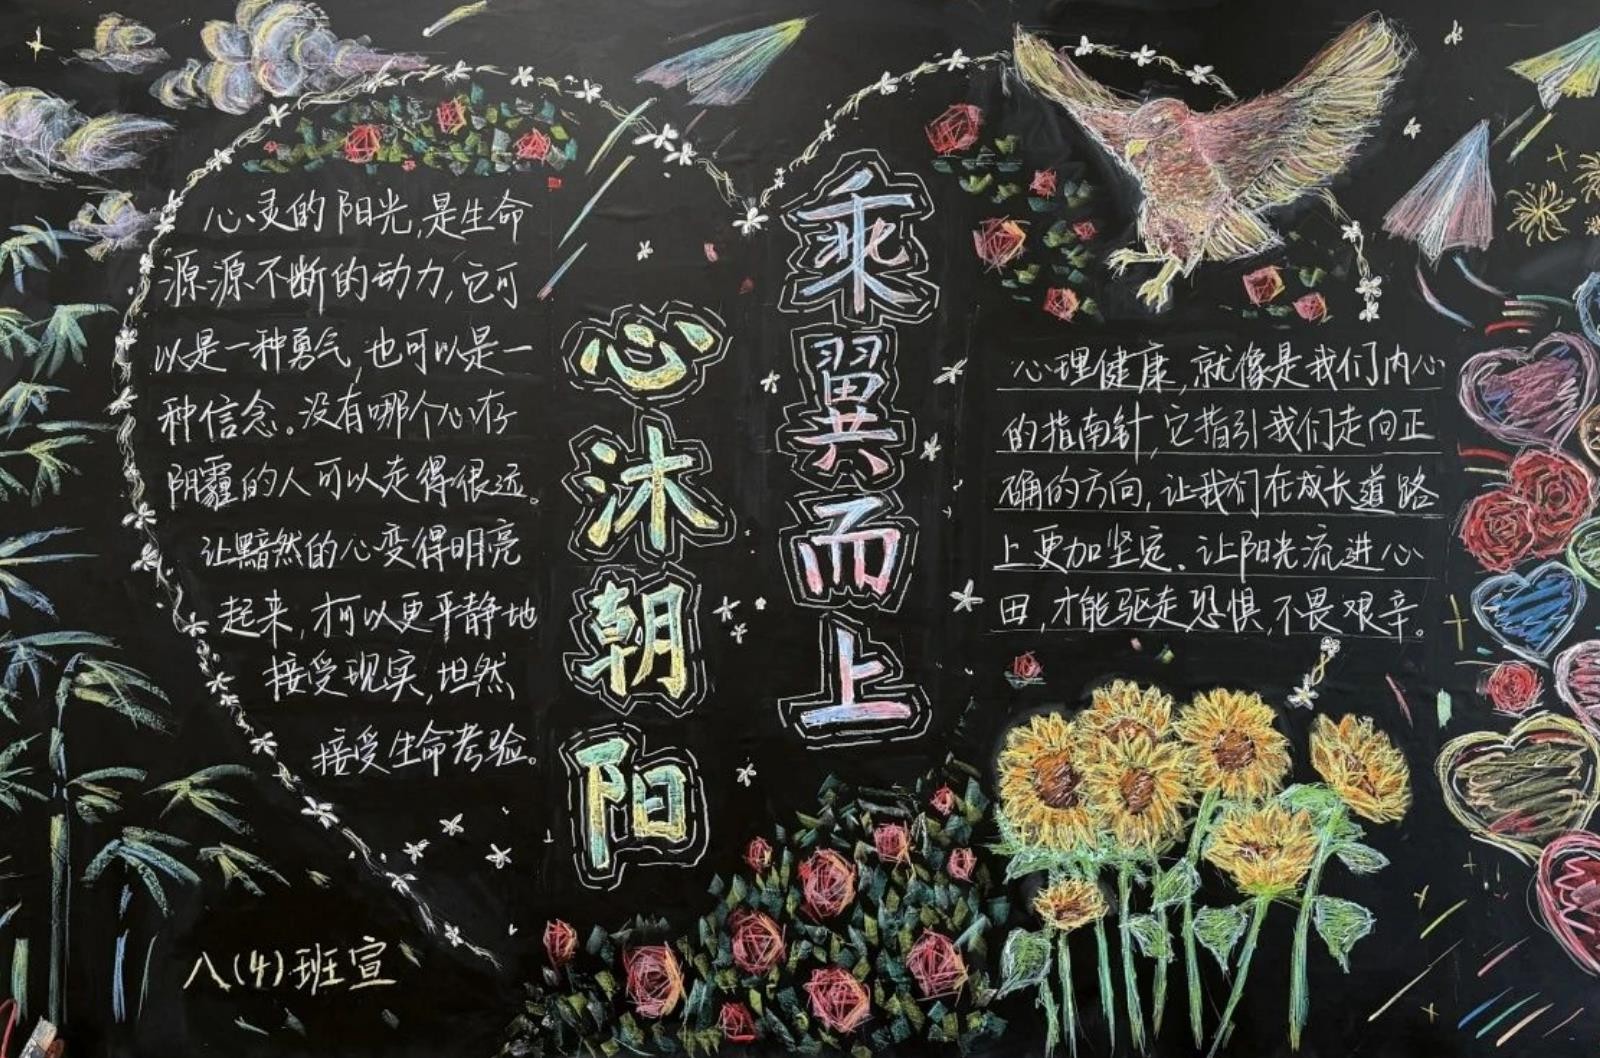 心灵的阳光,是生命
源源不断的动力,它可
以是一种勇气,也可以是一
种信念。没有哪个心存
阴霾的人可以走得很远。
让黯然的心变得明亮
起来,才可以更平静地
接受现实,坦然
接受生命考验。
八(4)班宣
心沐朝阳
乘翼而上
心理健康,就像是我们内心
的指南针,它指引我们走向正
确的方向,让我们在成长道路
上更加坚定、让阳光流进心
田,才能驱走恐惧,不畏艰辛。